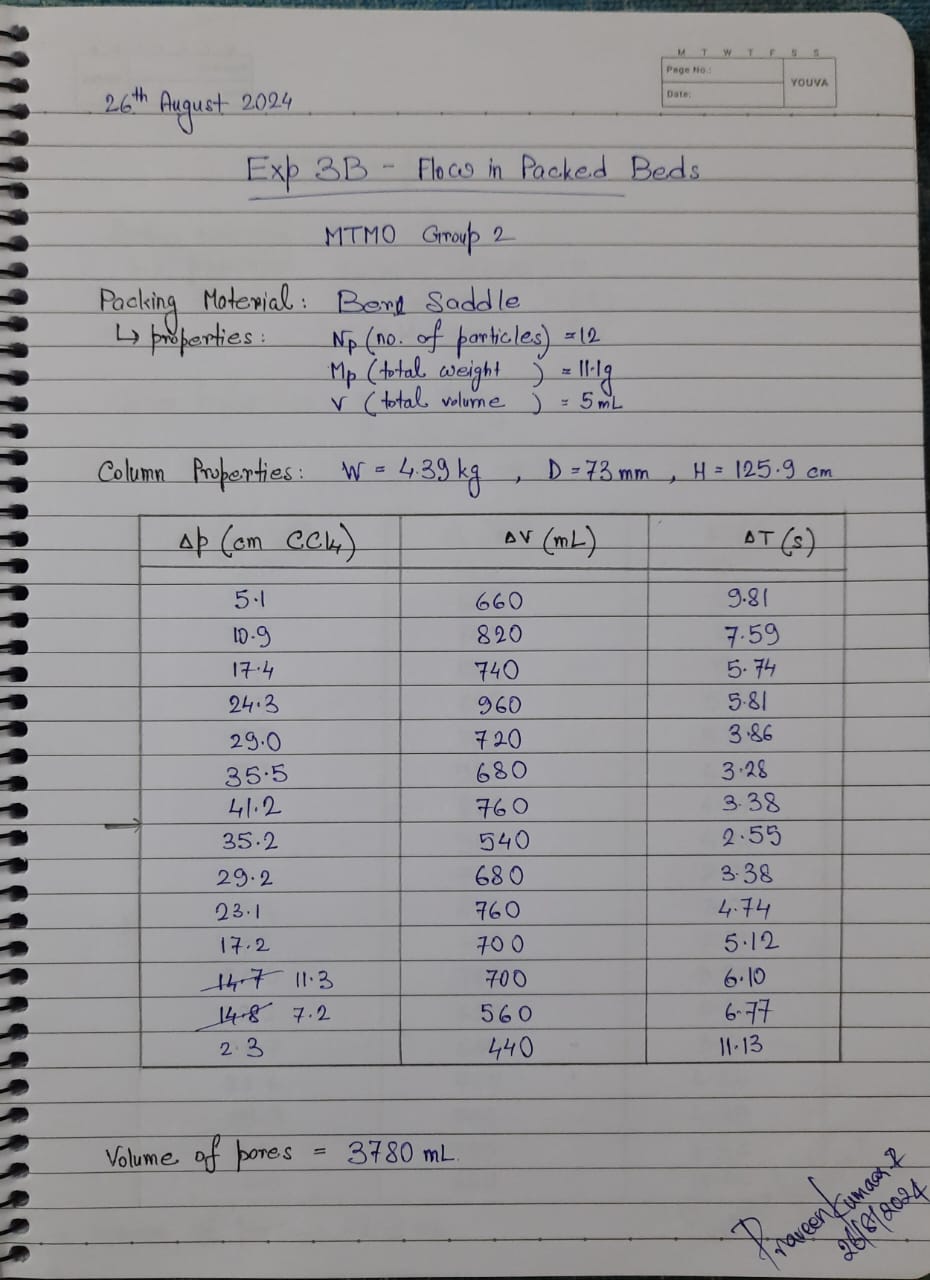 M T W T F S S
Page No.:
YOUVA
Date:
26th August 2024
Exp 3B - Flow in Packed Beds
MTMO Group 2
Packing Material: Berl Saddle
↳ properties: Np (no. of particles) = 12
Mp (total weight ) = 11.1g
V (total volume ) = 5 mL
Column Properties: W = 4.39 kg , D = 73 mm , H = 125.9 cm
Δp (cm CCl4) ΔV (mL) ΔT (s)
5.1 660 9.81
10.9 820 7.59
17.4 740 5.74
24.3 960 5.81
29.0 720 3.86
35.5 680 3.28
41.2 760 3.38
→
35.2 540 2.55
29.2 680 3.38
23.1 760 4.74
17.2 700 5.12
14.7 11.3 700 6.10
14.8 7.2 560 6.77
2.3 440 11.13
Volume of pores = 3780 mL.
Praveen Kumaar R
26/8/2024